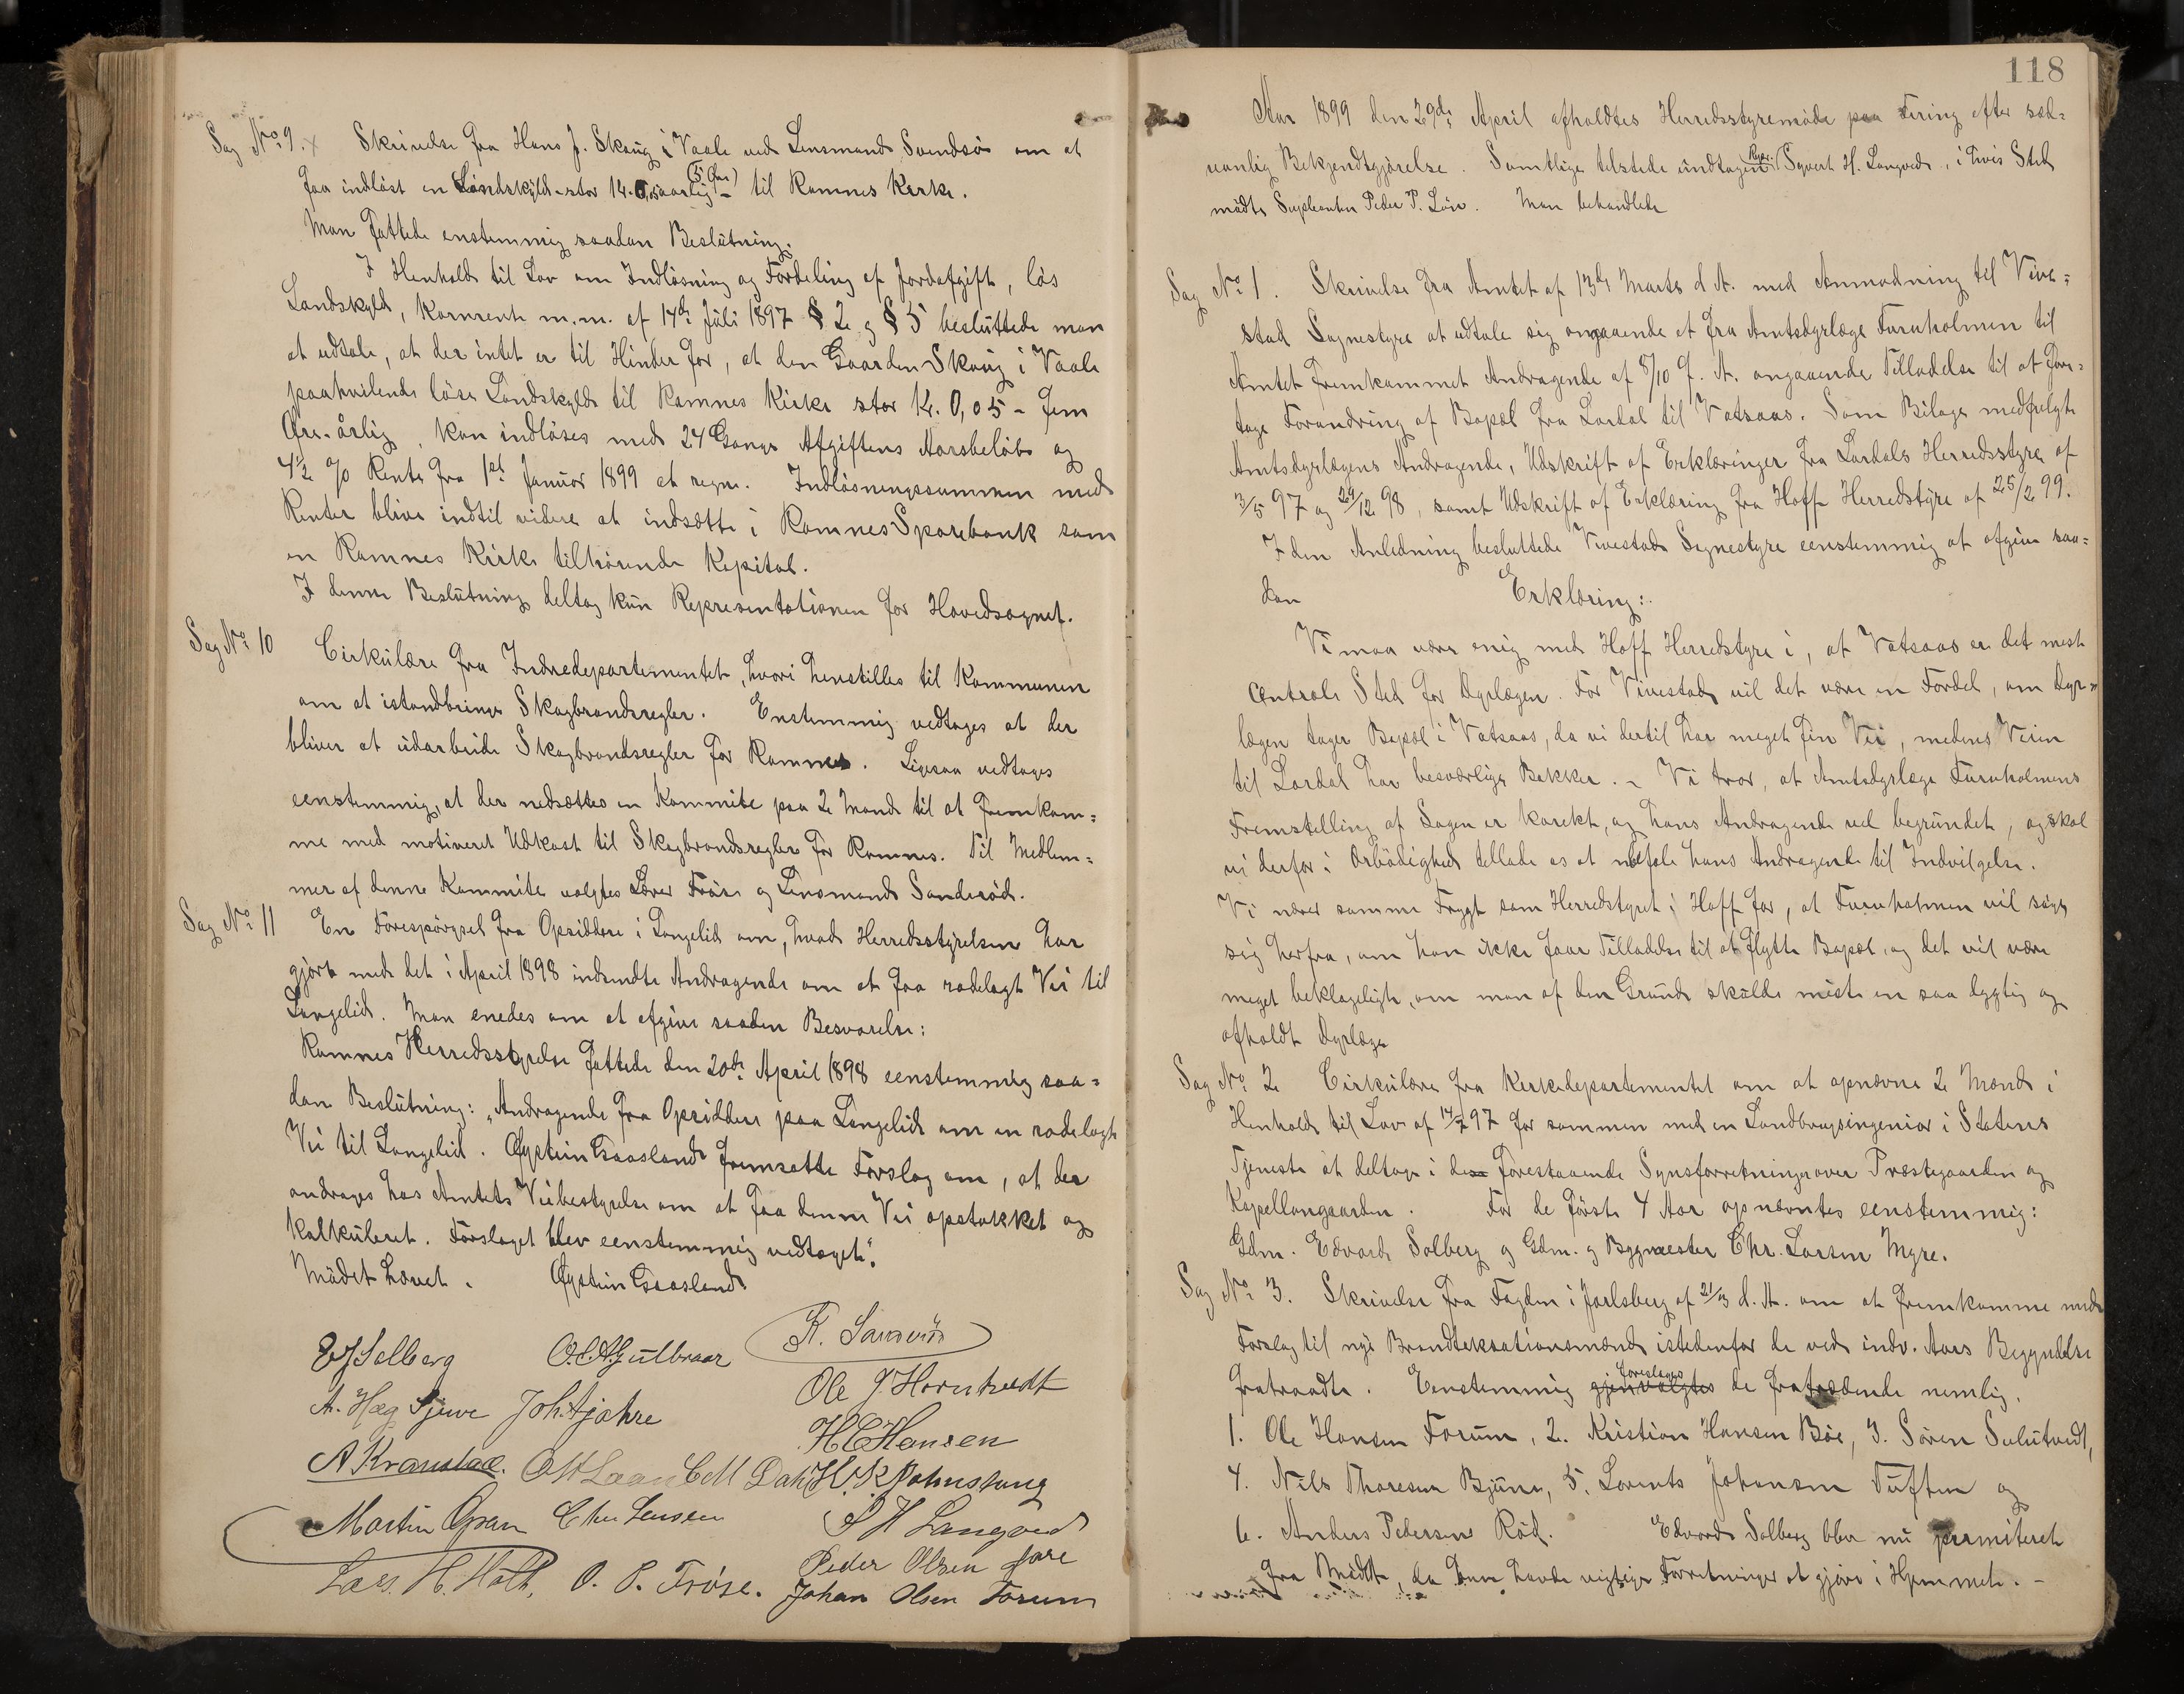 Sag No 9. x Skrivelse fra Hans J. Skaug i Vaale ved Lensmand Svendsö om at
faa indlöst en Landskyld stor 14. 0,05 aarlig (5 Øre) til Ramnes Kirke.
Man fattede enstemmig saadan Beslutning.
I Henhold til Lov om Indlösning og Fordeling af Jordafgift, lös
Landskyld, Kornrente m.m. af 14de Juli 1897 § 2 og § 5 besluttede man
at udtale, at der intet er til Hinder for, at den Gaarden Skaug i Vaale
paahvilende löse Landskyld til Ramnes Kirke stor Kr. 0,05 - fem
Øre - årlig, kan indlöses med 24 Gange Afgiftens Aarsbelöb og
4½ % Rente fra 1st Januar 1899 at regne. Indlösningssummen med
Renter blive indtil videre at indsætte i Ramnes Sparebank som
en Ramnes Kirke tilhörende Kapital.
I denne Beslutning deltog kun Repræsentationen for Hovedsognet.
Sag No 10 Cirkulære fra Indredepartementet, hvori henstilles til Kommunen
om at istandbringe Skogbrandsregler. Enstemmig vedtages at der
bliver at udarbeide Skogbrandsregler for Ramnes. Ligesaa vedtages
eenstemmig, at der nedsættes en Kommite paa 2 Mand til at fremkom=
me med motiveret Udkast til Skogbrandsregler for Ramnes. Til Medlem=
mer af denne Kommite valgtes Lærer Fröse og Lensmand Sanderöd.
Sag No 11 En Forespörgsel fra Opsiddere i Langelid om, hvad Herredsstyrelsen har
gjort med det i April 1898 indsendte Andragende om at faa rodelagt Vei til
Langelid. Man enedes om at afgive saadan Besvarelse:
Ramnes Herredsstyrelse fattede den 20de April 1898 eenstemmig saa=
dan Beslutning: „Andragende fra Opsiddere paa Langelid om en rodelagt
Vei til Langelid. Øystein Gaasland fremsatte Forslag om, at der
andrages hos Amtets Veibestyrelse om at faa denne Vei opstukket og
kalkuleret. Forslaget blev eenstemmig vedtaget".
Mödet hævet. Øystein Gaasland
E J Solberg O.C.A. Gulbraar K. Sanderöd
A. Hæg Sjuve Joh. Ajohre Ole J. Horntvedt
A Kranstad. H C Hansen
Martin Gran Chr Jensen S H Langved
Lars H. Holt. O. P. Fröse. Peder Olsen Jare
Johan Olsen Forum
118
Aar 1899 den 29de April afholdtes Herredsstyremöde paa Fering efter sæd=
vanlig Bekjendtgjörelse. Samtlige tilstede undtagen Repr. Syvert H. Langved, i hvis Sted
mödte Suppleanten Peder P. Lön. Man behandlede
Sag No 1. Skrivelse fra Amtet af 13de Marts d A. med Anmodning til Vive=
stad Sognestyre at udtale sig angaaende et fra Amtsdyrlæge Furuholmen til
Amtet fremkommet Andragende af 8/10 f. A. angaaende Tilladelse til at fore=
tage Forandring af Bopæl fra Lardal til Vatsaas. Som Bilage medfulgte
Amtsdyrlægens Andragende, Udskrift af Erklæringer fra Lardals Herredsstyre af
3/5 97 og 29/12 98, samt Udskrift af Erklæring fra Hoff Herredstyre af 25/2 99.
I den Anledning besluttede Vivestads Sognestyre eenstemmig at afgive saa=
dan Erklæring:
Vi maa være enig med Hoff Herredstyre i, at Vatsaas er det mest
centrale Sted for Dyrlægen. For Vivestad vil det være en Fordel, om Dyr=
lægen tager Bopæl i Vatsaas, da vi dertil har meget fin Vei, medens Veien
til Lardal har besværlige Bakker. - Vi tror, at Amtsdyrlæge Furuholmens
Fremstilling af Sagen er korekt, og hans Andragende vel begrundet, og skal
vi derfor i Ærbödighed tillade os at anbefale hans Andragende til Indvilgelse.
Vi nærer samme Frygt som Herredstyret i Hoff for, at Furuholmen vil söge
sig herfra, om han ikke faar Tilladelse til at flytte Bopæl, og det vil være
meget beklageligt, om man af den Grund skulde miste en saa dygtig og
afholdt Dyrlæge
Sag No 2 Cirkulære fra Kirkedepartementet om at opnævne 2 Mænd i
Henhold til Lov af 14/7 97 for sammen med en Landbrugsingeniør i Statens
Tjeneste at deltage i de forestaaende Synsforretninger over Præstegaarden og
Kapellangaarden. For de förste 4 Aar opnævntes eenstemmig:
Gdm. Edvard Solberg og Gdm. og Bygmester Chr. Larsen Myre.
Sag No 3. Skrivelse fra Fogden i Jarlsberg af 21/3 d. A. om at fremkomme med
Forslag til nye Brandtaksationsmænd istedenfor de ved indv. Aars Begyndelse
fratraadte. Eenstemmig gjenvalgtes foreslages de fratrædende nemlig.
1. Ole Hansen Forum, 2. Kristian Hansen Böe, 3. Sören Sulutvedt,
4. Nils Thoresen Bjune, 5. Lorents Johansen Tuften og
6. Anders Pedersen Röd. Edvard Solberg blev nu permiteret
fra Mödet, da han havde vigtige Forretninger at gjöre i Hjemmet. -